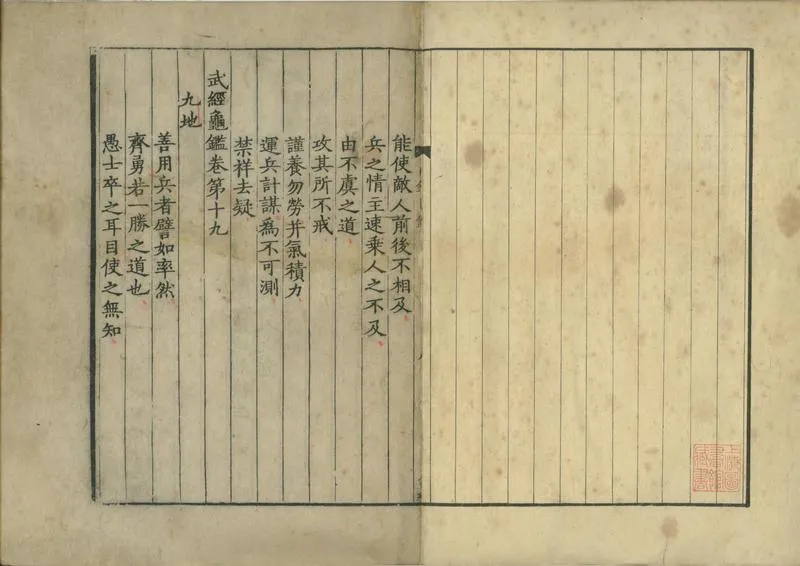 能使敵人前後不相及
兵之情主速乘人之不及
由不虞之道
攻其所不戒
謹養勿勞并氣積力
運兵計謀為不可測
禁祥去疑
武經龜鑑卷第十九
九地
善用兵者譬如率然
齊勇若一勝之道也
愚士卒之耳目使之無知
上海圖
書館
藏書